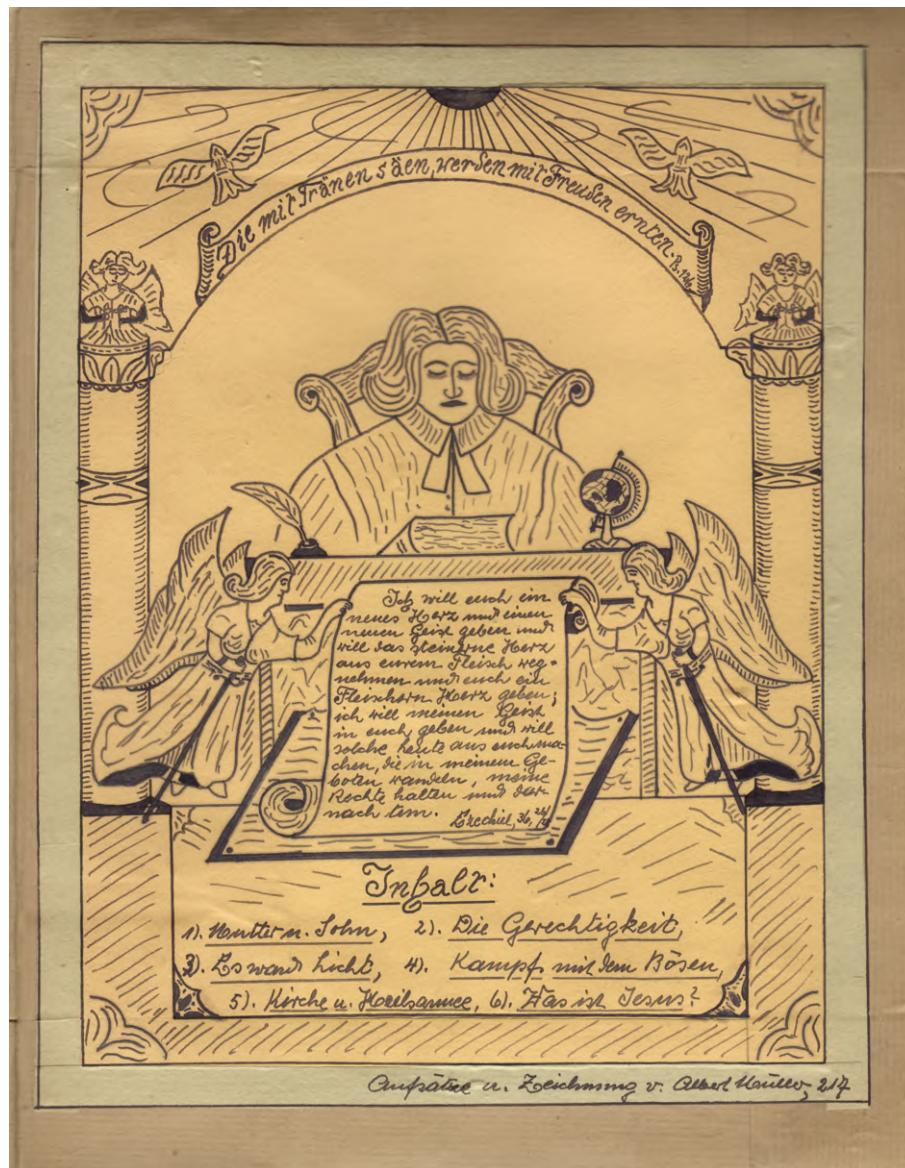 Die mit Tränen säen, werden mit Freuden ernten. Ps. 126
Ich will euch ein
neues Herz und einen
neuen Geist geben und
will das steinerne Herz
aus eurem Fleisch weg-
nehmen und euch ein
Fleischern Herz geben;
ich will meinen Geist
in euch geben und will
solche Leute aus euch ma-
chen, die in meinem Ge-
boten wandeln, meine
Rechte halten und dar
nach tun.
Ezechiel, 36,
Inhalt:
1). Mutter u. Sohn, 2). Die Gerechtigkeit,
3). Es ward Licht, 4). Kampf mit dem Bösen,
5). Kirche u. Heilsarmee, 6). Was ist Jesus?
Aufsätze u. Zeichnung v. Albert Müller, 217